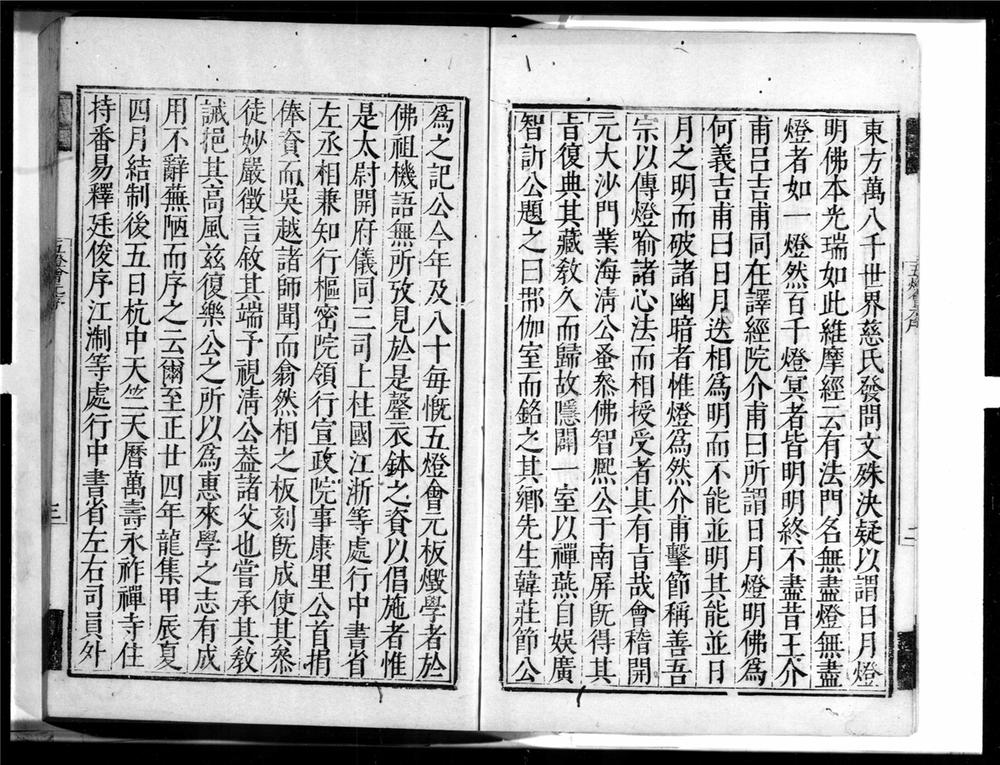 東方萬八千世界慈氏發問文殊決疑以謂日月燈
明佛本光瑞如此維摩經云有法門名無盡燈無盡
燈者如一燈然百千燈冥者皆明明終不盡昔王介
甫呂吉甫同在譯經院介甫曰所謂日月燈明佛為
何義吉甫曰日月迭相為明而不能並明其能並日
月之明而破諸幽暗者惟燈為然介甫擊節稱善吾
宗以傳燈喻諸心法而相授受者其有旨哉會稽開
元大沙門業海清公蚤叅佛智熈公于南屏旣得其
旨復典其藏敎久而歸故隱闢一室以禪燕自娛廣
智訢公題之曰那伽室而銘之其鄉先生韓莊節公
五燈會元序
二
為之記公今年及八十每慨五燈會元板燬學者於
佛祖機語無所攷見於是罄衣鉢之資以倡施者惟
是太尉開府儀同三司上柱國江浙等處行中書省
左丞相兼知行樞密院領行宣政院事康里公首捐
俸資而吳越諸師聞而翕然相之板刻旣成使其叅
徒妙嚴徵言敘其端予視清公葢諸父也嘗承其敎
誡挹其高風兹復樂公之所以為惠來學之志有成
用不辭蕪陋而序之云爾至正廿四年龍集甲辰夏
四月結制後五日杭中天竺天曆萬壽永祚禪寺住
持番易釋廷俊序江淛等處行中書省左右司員外
五燈會元序
三